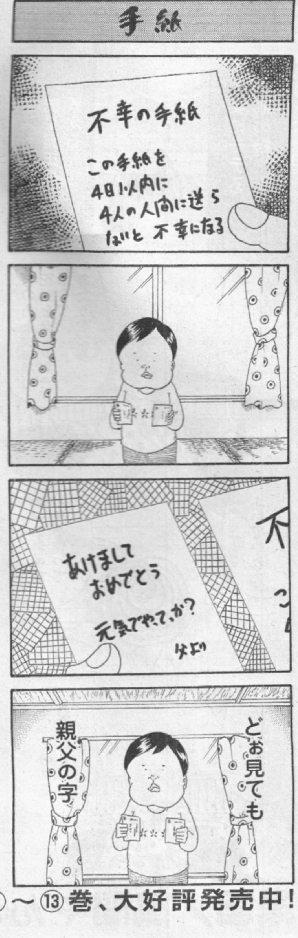 手紙
不幸の手紙
この手紙を
4日以内に
4人の人間に送ら
ないと不幸になる
あけまして
おめでとう
元気でやってっか?
父より
不
どぉ見ても
親父の字
～⑬巻、大好評発売中!